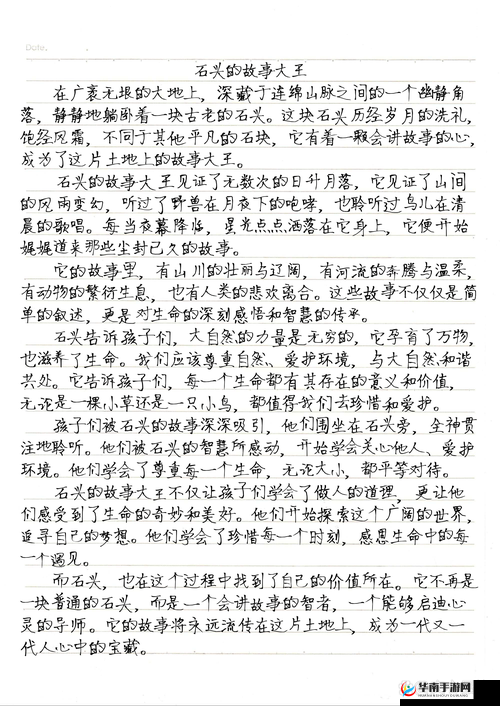 Date.
石兴的故事大王
在广袤无垠的大地上，深藏于连绵山脉之间的一个幽静角
落，静静地躺卧着一块古老的石兴。这块石头历经岁月的洗礼，
饱经风霜，不同于其他平凡的石块，它有着一颗会讲故事的心，
成为了这片土地上的故事大王。
石兴的故事大王见证了无数次的日升月落，它见证了山间
的风雨变幻，听过了野兽在月夜下的咆哮，也聆听过鸟儿在清
晨的歌唱。每当夜幕降临，星光点点洒落在它身上，它便开始
娓娓道来那些尘封已久的故事。
它的故事里，有山川的壮丽与辽阔，有河流的奔腾与温柔，
有动物的繁衍生息，也有人类的悲欢离合。这些故事不仅仅是简
单的叙述，更是对生命的深刻感悟和智慧的传承。
石兴告诉孩子们，大自然的力量是无穷的，它孕育了万物，
也滋养了生命。我们应该尊重自然、爱护环境，与大自然和谐
共处。它告诉孩子们，每一个生命都有其存在的意义和价值，
无论是一棵小草还是一只小鸟，都值得我们去珍惜和爱护。
孩子们被石兴的故事深深吸引，他们围坐在石兴旁，全神贯
注地聆听。他们被石兴的智慧所感动，开始学会关心他人、爱护
环境。他们学会了尊重每一个生命，无论大小，都平等对待。
石兴的故事大王不仅让孩子们学会了做人的道理，更让他
们感受到了生命的奇妙和美好。他们开始探索这个广阔的世界，
追寻自己的梦想。他们学会了珍惜每一个时刻，感恩生命中的每
一个遇见。
而石兴，也在这个过程中找到了自己的价值所在。它不再是
一块普通的石头，而是一个会讲故事的智者，一个能够启迪心
灵的导师。它的故事将永远流传在这片土地上，成为一代又一
代人心中的宝藏。
华南手游网